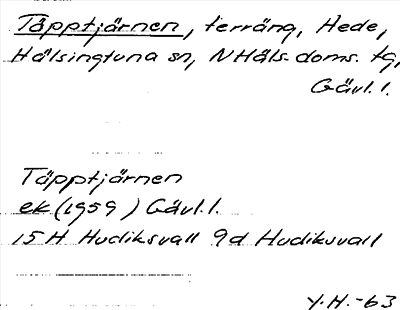 Täpptjärnen, terräng, Hede,
Hälsingtuna sn, N Häls. doms. tg,
Gävl. l.
Täpptjärnen
ek (1959) Gävl. l.
15 H Hudiksvall 9d Hudiksvall
Y.H. -63